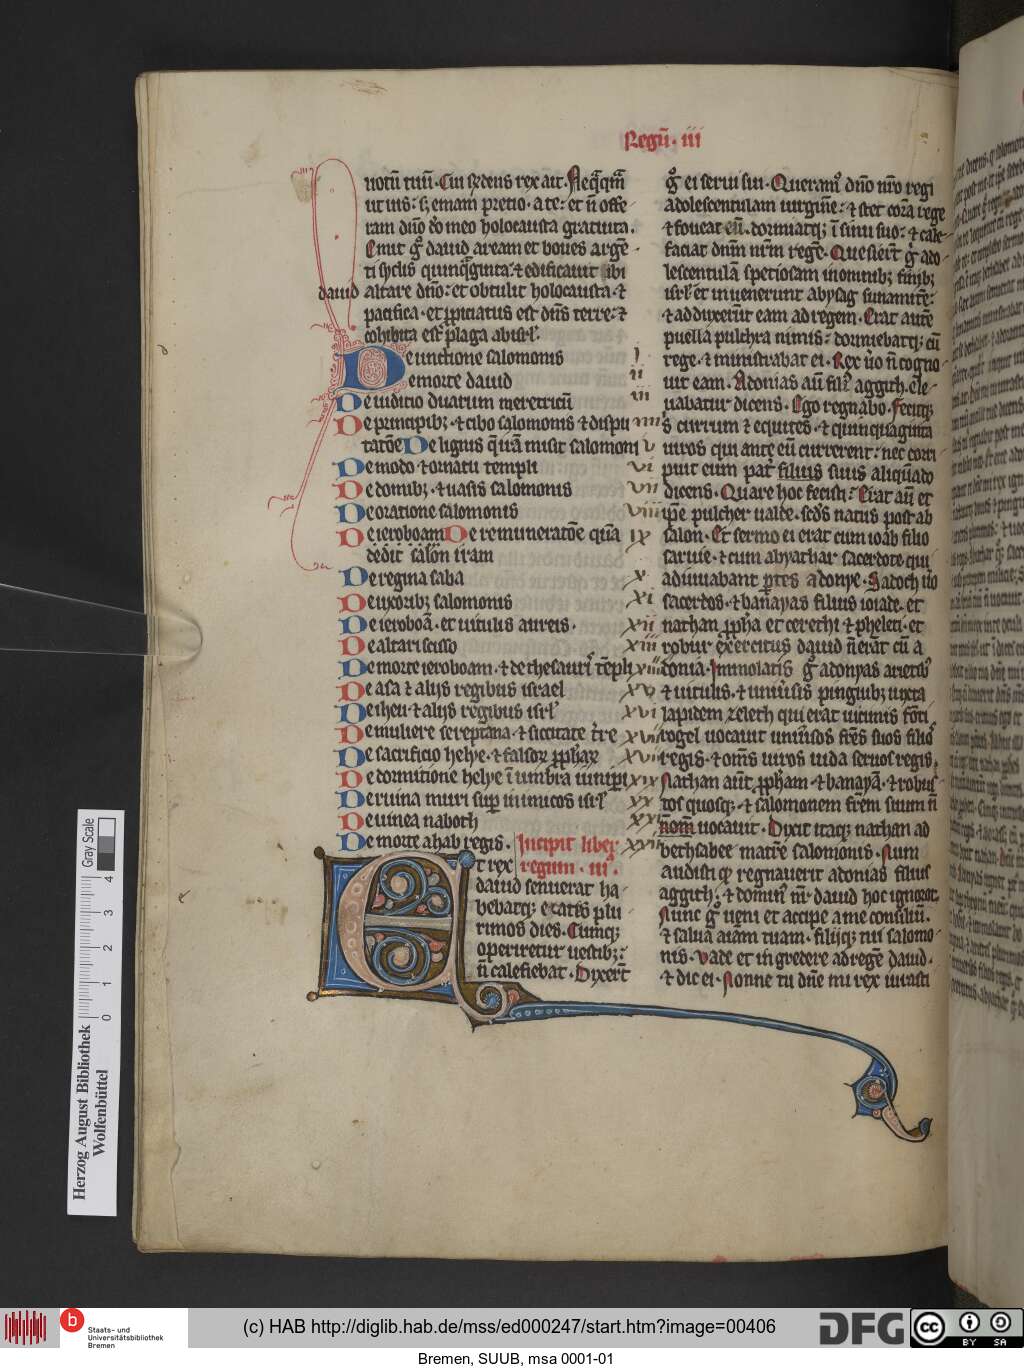 Regū · iii
uotū tuū · Cui rn̄dens rex ait · Neq̄q̄m̄
ut uis : s; emam precio · a te : et n̄ offe
ram dn̄o dō meo holocausta gratuita ·
Emit g̊ dauid aream et boues argē
ti syclis quinq̄ginta : ⁊ edificauit ibi
dauid altare dn̄o : et obtulit holocausta · ⁊
pacifica · et ꝓpiciatus est dn̄s terre : ⁊
cohibita est plaga ab isrl̄ ·
De unctione salomonis i
De morte dauid ii
De iuditio duarum meretricū iii
De principib; · ⁊ cibo salomonis ⁊ dispu iiii
tatōe De lignis q̄ irā misit salomoni v
De modo ⁊ ornatu templi vi
De domib; · ⁊ uasis salomonis vii
De oratione salomonis viii
De ieroboam De remuneratōe quā ix
dedit salōn iram
De regina saba x
De uxorib; salomonis xi
De ieroboā · et uitulis aureis · xii
De altari scisso xiii
De morte ieroboam · ⁊ de thesaur̄ tēpli xiiii
De asa ⁊ alijs regibus israel xv
De iheu ⁊ alijs regibus isrl̄ xvi
De muliere sereptana · ⁊ siccitate t̄re xvii
De sacrificio helye · ⁊ falsoꝝ ꝓphaꝝ xviii
De dormitione helye ī umbra iunipi xix
De ruina muri sup̄ inimicos isrl̄ xx
De uinea naboth xxi
De morte ahab regis · xxii
Incipit liber
regum · iii ·
Et rex
dauid senuerat ha
bebatq; etatis plu
rimos dies · Cumq;
operiretur uestib; :
n̄ calefiebat · Dixert̄
g̊ ei serui sui · Queram᷒ dn̄o nr̄o regi
adolescentulam uirginē : ⁊ stet corā rege
⁊ foueat eū · dormiatq; ī sinu suo : ⁊ cale
faciat dnm̄ nr̄m regē · Quesiert̄ g̊ ado
lescentulā speciosam in omnib; finib;
isrl̄ et inuenerunt abysag sunamitē :
⁊ adduxerūt eam ad regem · Erat autē
puella pulchra nimis : dormiebatq; cū
rege · ⁊ ministrabat ei · Rex ūo n̄ cogno
uit eam · Adonias aū fili᷒ aggith · ele
uabatur dicens · Ego regnabo · Fecitq;
s currum ⁊ equites · ⁊ quinquaginta
uiros qui ante eū currerent : nec corri
puit eum pat̄ filius suus aliquādo
dicens · Quare hoc fecisti : Erat aū et
ip̄e pulcher ualde · scds̄ natus post ab
salon · Et sermo ei erat cum ioab filio
saruie · ⁊ cum abyathar sacerdote qui
adiuuabant p̄tes adonye · Sadoch ūo
sacerdos · ⁊ banayas filius ioiade · et
nathan ꝓpha et cerethi ⁊ pheleti · et
robur exercitus dauid n̄ erāt cū a
donia · Immolatis g̊ adonyas arietib᷒
⁊ uitulis · ⁊ uniūsis pinguib; iuxta
lapidem zeleth qui erat uicinus fōti
rogel uocauit uniūsos frēs suos filios
regis · ⁊ om̄s uiros iuda seruos regis ·
Nathan aūt ꝓpham ⁊ banayā · ⁊ robus
tos quosq; · ⁊ salomonem frēm suum n̄
uocauit · Dixit itaq; nathan ad
bethsabee matrē salomonis · Num
audisti ꝙ regnauerit adonias filius
aggith : ⁊ domin᷒ nr̄ dauid hoc ignorat ·
Nunc g̊ ueni et accipe a me consiliū ·
⁊ salua aīam tuam · filijq; tui salomo
nis · Vade et ingredere ad regē dauid ·
⁊ dic ei · Nonne tu dn̄e mi rex iurasti
Herzog August Bibliothek
Wolfenbüttel
0 1 2 3 4
Gray Scale
b Staats- und
Universitätsbibliothek
Bremen
(c) HAB http://diglib.hab.de/mss/ed000247/start.htm?image=00406
DFG
cc BY SA
Bremen, SUUB, msa 0001-01